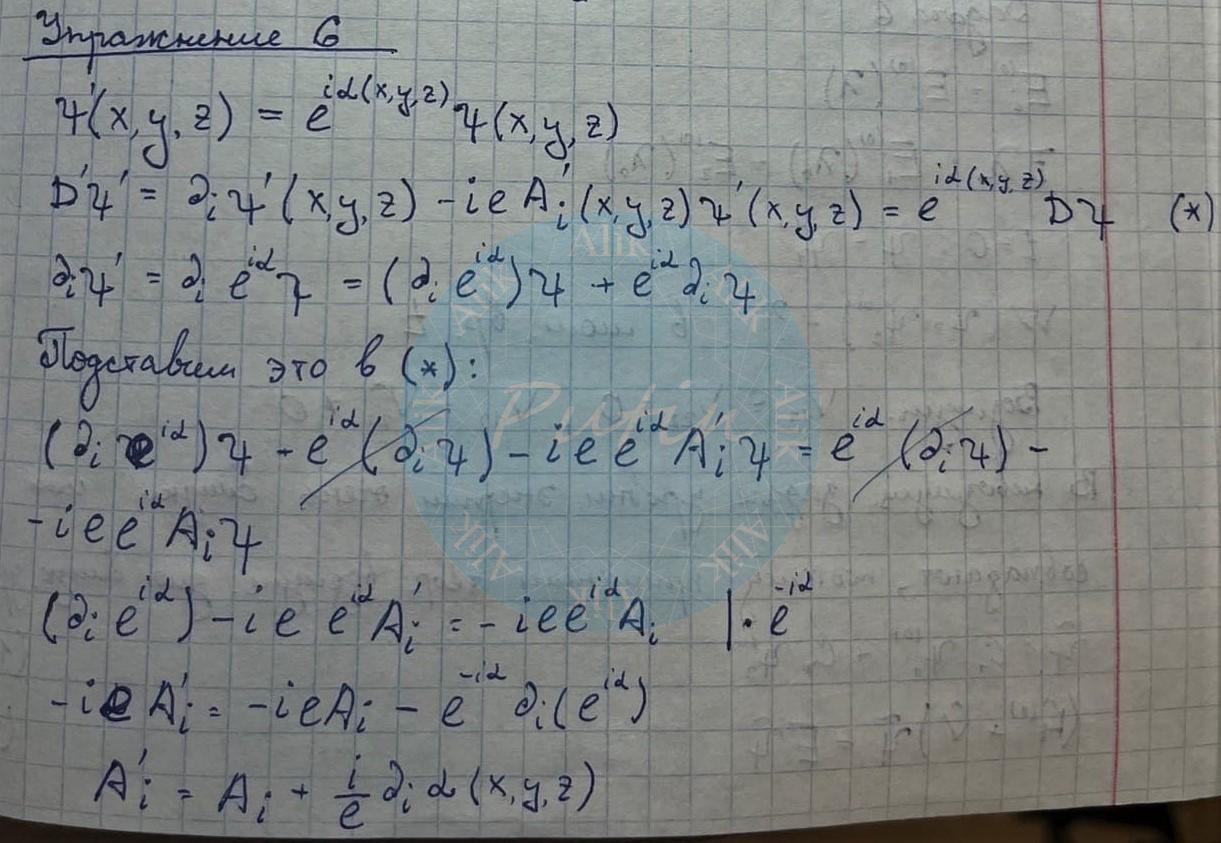 Упражнение 6
ψ'(x,y,z) = e^{iα(x,y,z)} ψ(x,y,z)
D'ψ' = ∂_i ψ'(x,y,z) - ieA'_i(x,y,z)ψ'(x,y,z) = e^{iα(x,y,z)} Dψ (*)
∂_iψ' = ∂_i e^{iα}ψ = (∂_i e^{iα})ψ + e^{iα}∂_iψ
Подставим это в (*):
(∂_i e^{iα})ψ - e^{iα}(∂_iψ) - iee^{iα}A'_iψ = e^{iα}(∂_iψ) -
- iee^{iα}A_iψ
(∂_i e^{iα}) - ie e^{iα}A'_i = - iee^{iα}A_i | · e^{-iα}
- ieA'_i = - ieA_i - e^{-iα} ∂_i(e^{iα})
A'_i = A_i + \frac{i}{e} ∂_i α(x,y,z)
Putin
Alik
Alik
Alik
Alik
Alik
Alik
Alik
Alik